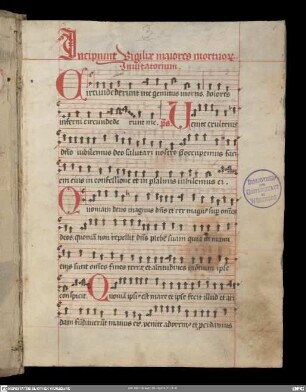 Incipiunt Vigiliæ maiores mortuor
Inuitatorium.
Circundederunt me gemitus mortis. dolores
inferni circundede runt me. ps. Uenite exultemus
dño iubilemus deo salutari nostro preoccupemus faci
em eius in confessione et in psalmis iubilemus ei.
Quoniam deus magnus dñs et rex magnus super omnes
deos quoniā non repellit dñs plebē suam quia in manu
eius sunt omnes fines terræ et altitudines montium ipse
conspicit. Quoniā ipsius est mare et ipse fecit illud et ari
dam fundauerūt manus eius venite adoremus et procidamus